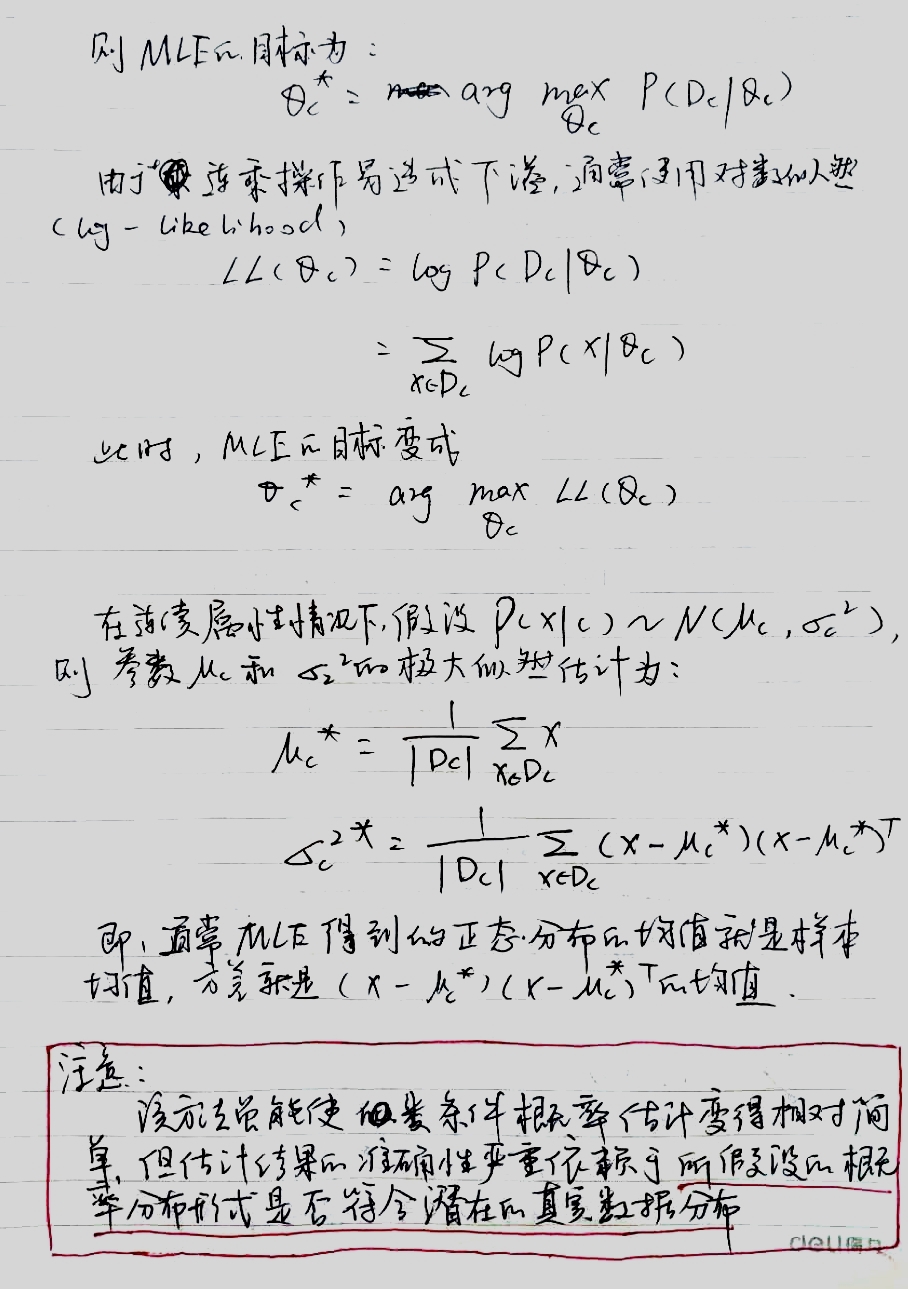 则 MLE的目标为：
θc* = arg max θc P(Dc|θc)
由于连乘操作易造成下溢，通常使用对数似然
(log-likelihood)
LL(θc) = log P(Dc|θc)
= ∑ x∈Dc log P(x|θc)
此时，MLE的目标变成
θc* = arg max θc LL(θc)
在连续属性情况下，假设 P(x|c) ~ N(μc, σc²),
则 参数 μc 和 σ2²的极大似然估计为：
μc* = 1/|Dc| ∑ x∈Dc x
σc²* = 1/|Dc| ∑ x∈Dc (x-μc*)(x-μc*)ᵀ
即，通常MLE得到的正态分布的均值就是样本
均值，方差就是 (x-μc*)(x-μc*)ᵀ的均值.
注意：
该方法虽能使类条件概率估计变得相对简
单，但估计结果的准确性严重依赖于所假设的概
率分布形式是否符合潜在的真实数据分布
deli得力